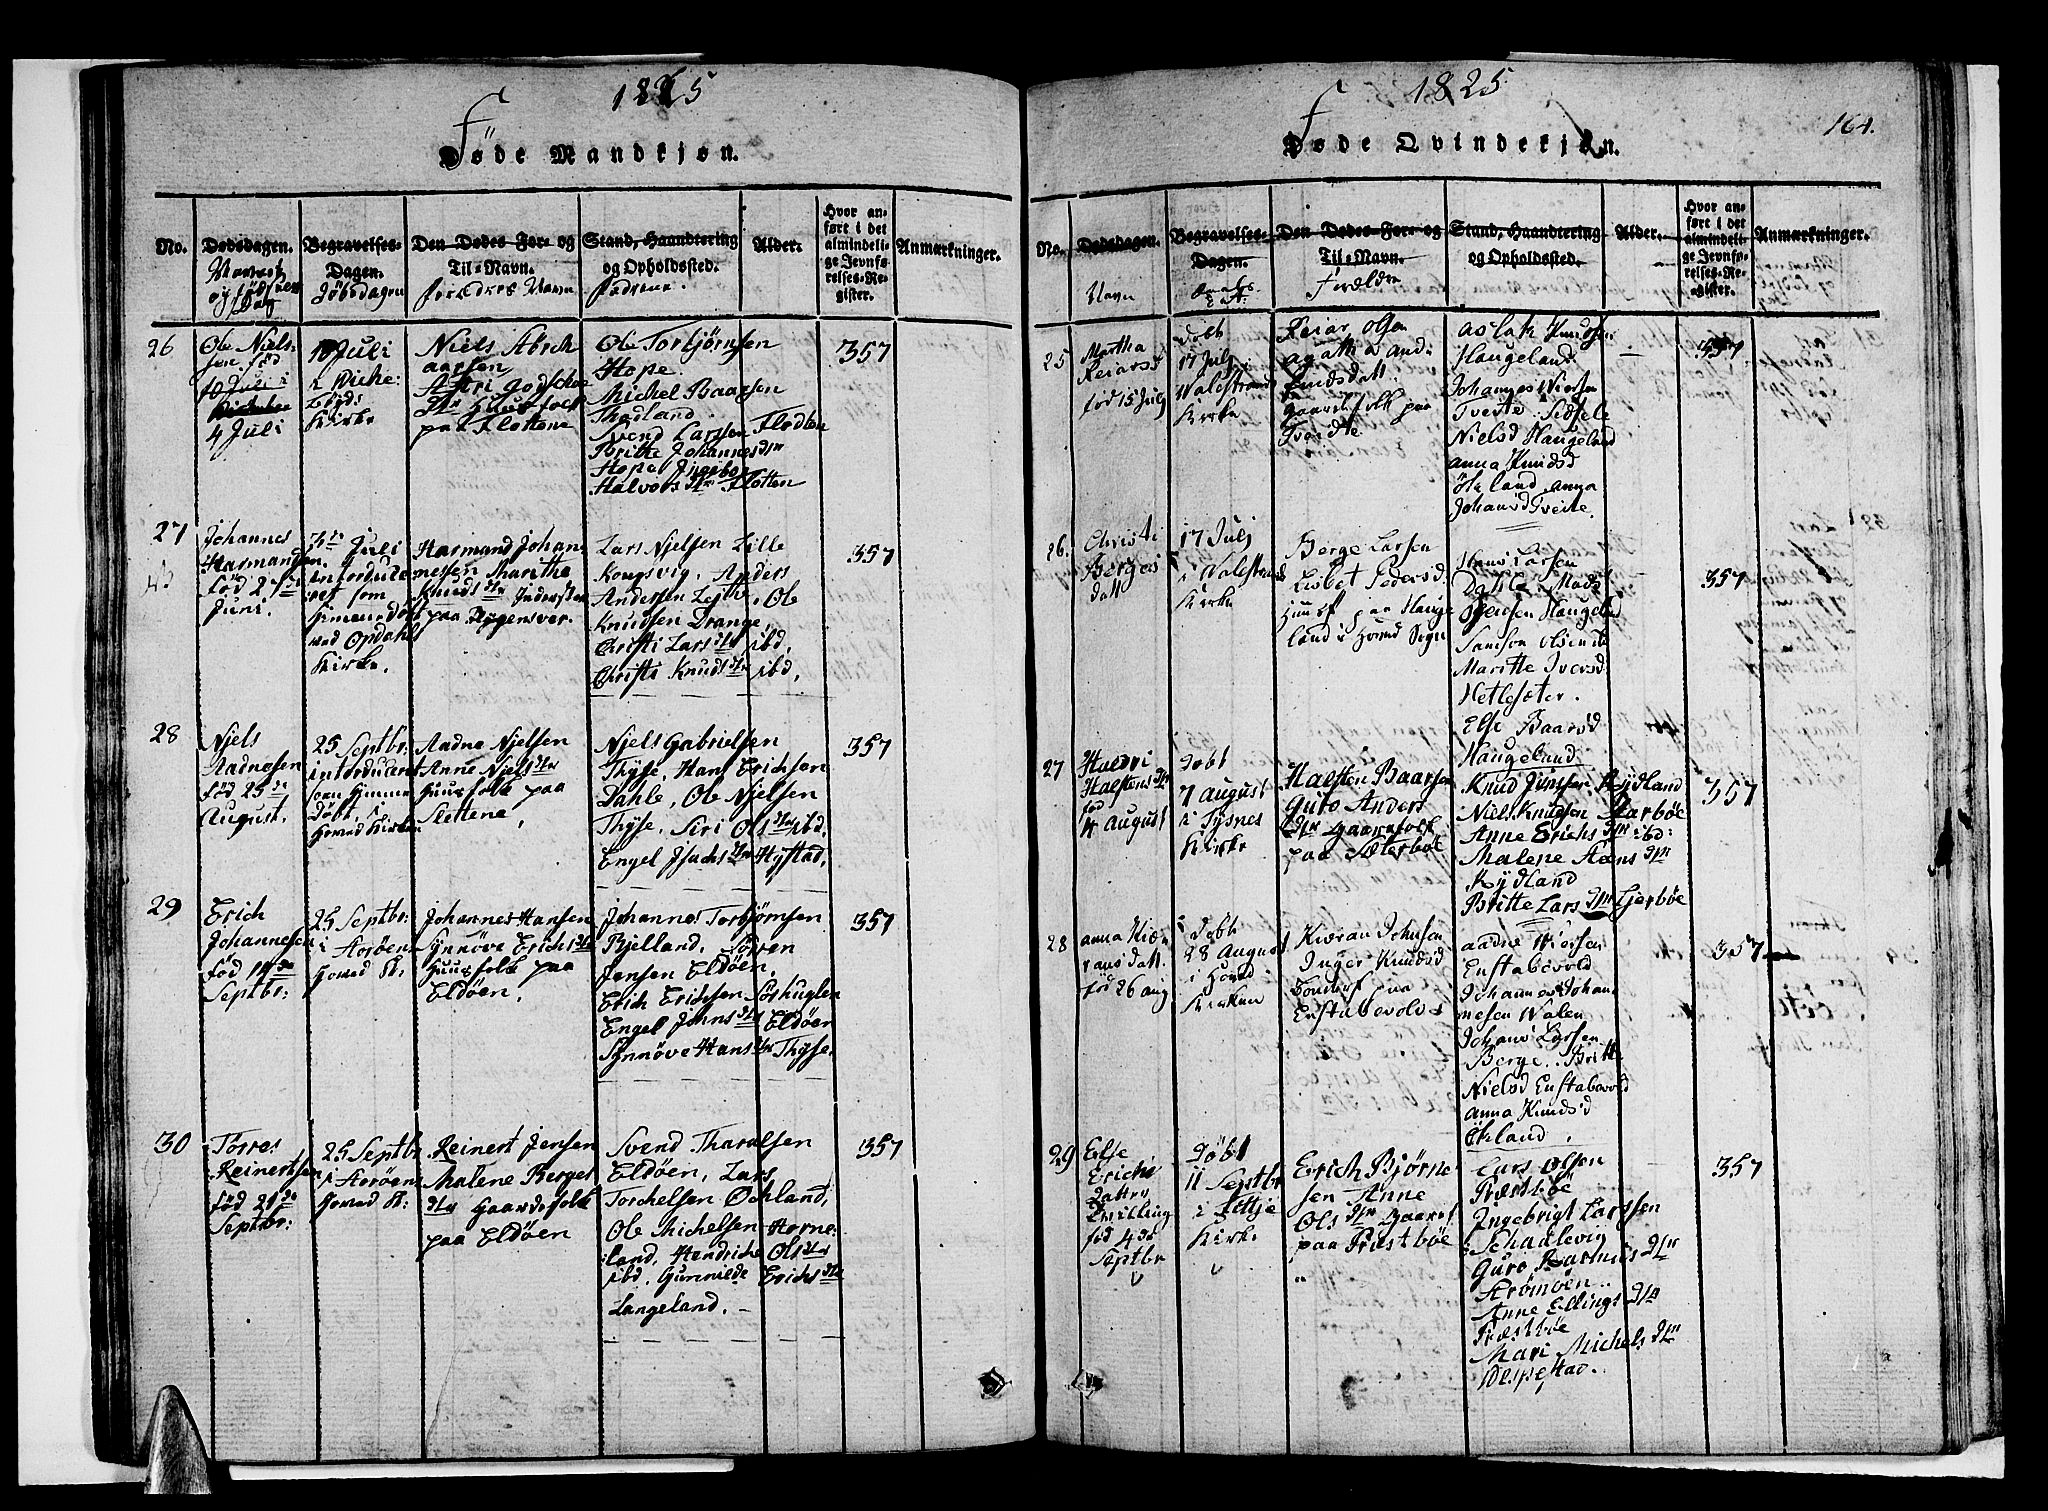 1825
Føde Mandkjøn.
No.
Dødsdagen.
Begravelses-
Dagen.
Døbsdagen
Den Dødes For- og
Til-Navn.
Forældres Navn
Stand, Haandtering
og Opholdssted.
Fadrene.
Alder.
Hvor an-
ført i det
almindeli-
ge Jevnfø-
relses-Re-
gister.
Anmarkninger.
26
Ole Niels-
sen. fød
4 Juli
10 Juli
i Wiche-
Kirke
Niels Absch
aarsen
Huusfolk
paa Flottene
Ole Torbjørnsen
Hope.
Michel Baarsen
Thadland.
Svend Larssen Flodten
Britte Johannesdtr
Hope
Halvorsdtr Flotten
357
27
Johannes
Harmandsen.
fød 27de
Juni.
Juli
introduce-
ret som
hjemmedøbt
ved Opdahls
Kirke.
Harmand Johan-
nessen Marithe
Knudsdtr Inderster
paa
Lars Njelsen Lille
Kongsvig, Anders
Andersen Lejthe, Ole
Knudsen Drange,
Christi Larsdtr ibd,
Christi Knudsdtr ibd,
357
28
Njels
Aadnesen
fød 25de
August.
25 Septbr:
introduceret
som hjemme
Døbt i
Aadne Njelsen
Anne Njelsdtr
Huusfolk paa
Slettene.
Njels Gabrielsen
Thyse, Hans Erichsen
Dahle, Ole Njelsen
Thyse, Siri Olsdtr ibd.
Engel Jsachsdtr Hystad,
357
29
Erich
Johannesen
fød 14de
Septbr:
25 Septbr:
i Aarøen
Hoved K:
Johannes Hansen
Synnøve Erichsdtr
Huusfolk paa
Eldøen.
Johannes Torbjørnsen
Bjelland, Søren
Jensen Eldøen,
Erich Erichsen Sørhuglen
Engel Johnsdtr Eldøen
Synnøve Hansdtr Thyse.
357
30
Torres
Reinertsen
fød 21de
Septbr:
25 Septbr:
i Aarøen
Hoved K:
Reinert Jensen
Malene Berges
dtr Gaardsfolk
paa Eldøen
Svend Tharalsen
Eldøen, Lars
Torchelsen Øchland,
Ole Michelsen Horne-
land, Hendriche Olsdtr
ibd. Gunnilde Erichsdtr
Langeland.
357
1825
164.
Føde Qvindekjøn.
No.
Dødsdagen.
Navn
Begravelses-
Dagen.
Den Dødes For- og
Til-Navn.
Forældre
Stand, Haandtering
og Opholdssted.
Alder.
Hvor an-
ført i det
almindeli-
ge Jevnfø-
relses-Re-
gister.
Anmarkninger.
25
Martha
Reiarsd
fød 15 July
Døbt
17 July
Walestrands
Kirke
Reiar Olsen
agatha And
Gaardsfolk paa
Tveidte
Aslak Knudsen
Haugeland.
Johannes Niersen
Tveite. Sidsele
Nielsd Haugeland
anna Knudsd
Økland anna
Johansd Tveite.
357
26.
Christi
Berges
datt
17 July
i Walestrands
Kirke
Berge Larsen
Lisbet Pedersd
Huusf paa Hauge
land i Hoved Sogn
Hans Larsen
Dahle Mads
Iversen Haugeland
Samson Olsen ib
Maritte Iversd
Hetlesæter.
Else Baarsd
Haugeland.
357
27
Haldri
Halstensdtr
fød
4 August
Døbt
7 August
i Tysnes
Kirke
Halsten Baarsen
Guro Anders
dtr Gaardfolk
paa Sæterbøe
Knud Jonssen Rydland
Niels Knudsen Aarbøe
Anne Erichsdtr ibd:
Malene Hansdtr
Rydland
Britte Larsdtr Gjerbøe
357
28
anna Kiæ-
ransdatt
fød 26 aug
Døbt
28 August
i Hoved
Kirken
Kieran Johnsen
Inger Knudsd
Bondef paa
Enstabevold
aadne Niersen
Enstabevold
Johannes Johan
nesen Walen
Johans Larsen
Berge. Britte
Nielsd Enstabevold
anna Knudsd
Økland.
357
29
Else
Erichs
Datter
Tvilling
fød 4de
Septbr
Døbt
11 Septbr
i Lettje
Kirke
Erich Bjørne
sen Anne
Olsdtr Gaardf
paa Præstbøe
Lars Olsen
Præstbøe
Ingebrigt Larssen
Schaalevig
Guro Rasmusdtr
Strømøen.
Anne Ellingsdtr
Præstbøe
Mari Michelsdtr
Wespestad.
357